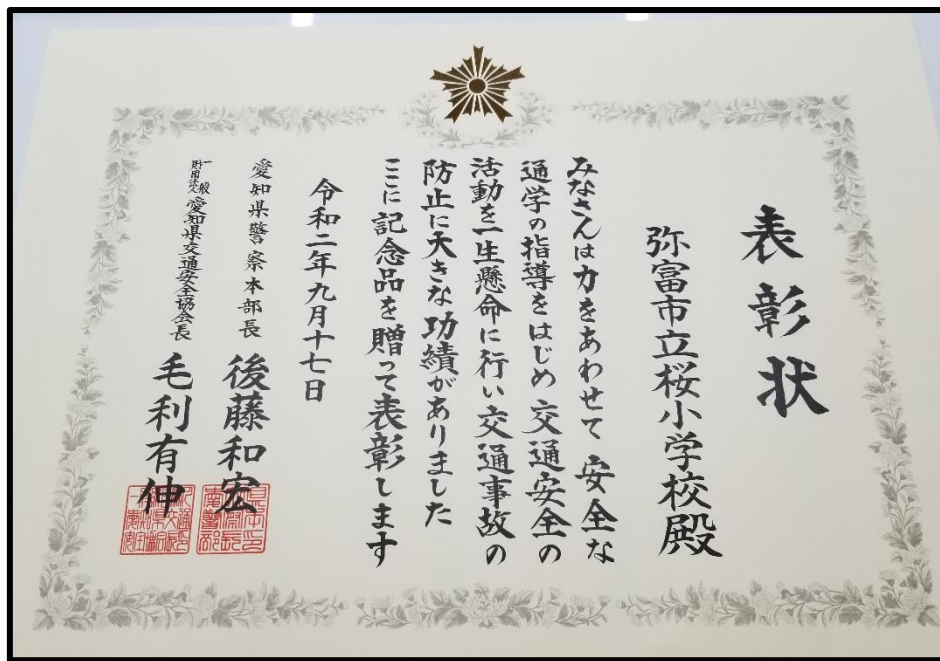 表彰状
弥富市立桜小学校殿
みなさんは力をあわせて安全な
通学の指導をはじめ交通安全の
活動を一生懸命に行い交通事故の
防止に大きな功績がありました
ここに記念品を贈って表彰します
令和二年九月十七日
愛知県警察本部長 後藤和宏
一般財団法人愛知県交通安全協会長 毛利有伸